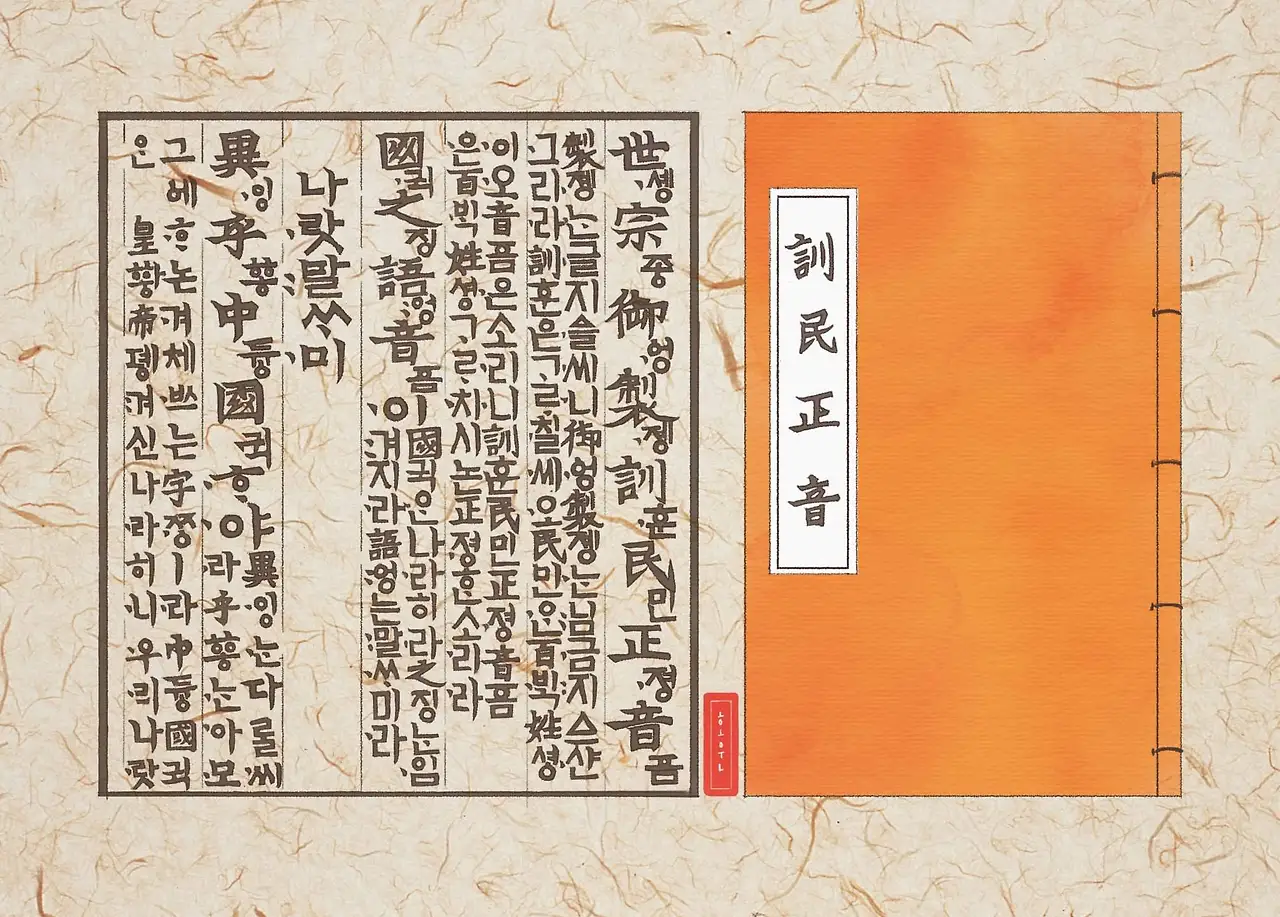 世솅宗종御엉製졩訓훈民민正졍音ᅙᅳᆷ
製졩는글지ᅀᅳᆯ씨니御엉製졩는님금지ᅀᅳ샨
그리라訓훈은ᄀᆞᄅᆞ칠씨오民민ᄋᆞᆫ百ᄇᆡᆨ姓셩
이오音ᅙᅳᆷ은소리니訓훈民민正졍音ᅙᅳᆷ
은百ᄇᆡᆨ姓셩ᄀᆞᄅᆞ치시논正졍ᄒᆞᆫ소리라
國귁之징語엉音ᅙᅳᆷ이
國귁ᄋᆞᆫ나라히라之징ᄂᆞᆫ입
겨지라語엉는말ᄊᆞ미라
나랏말ᄊᆞ미
異잉乎ᅘᅩᆼ中듕國귁ᄒᆞ야
異잉ᄂᆞᆫ다ᄅᆞᆯ씨
라乎ᅘᅩᆼᄂᆞᆫ아모
그ᅌᅦᄒᆞ논겨체ᄡᅳ는字ᄍᆞᆼㅣ라中듕國귁
ᄋᆞᆫ皇ᅘᅪᆼ帝뎽겨신나라히니우리나랏
訓民正音